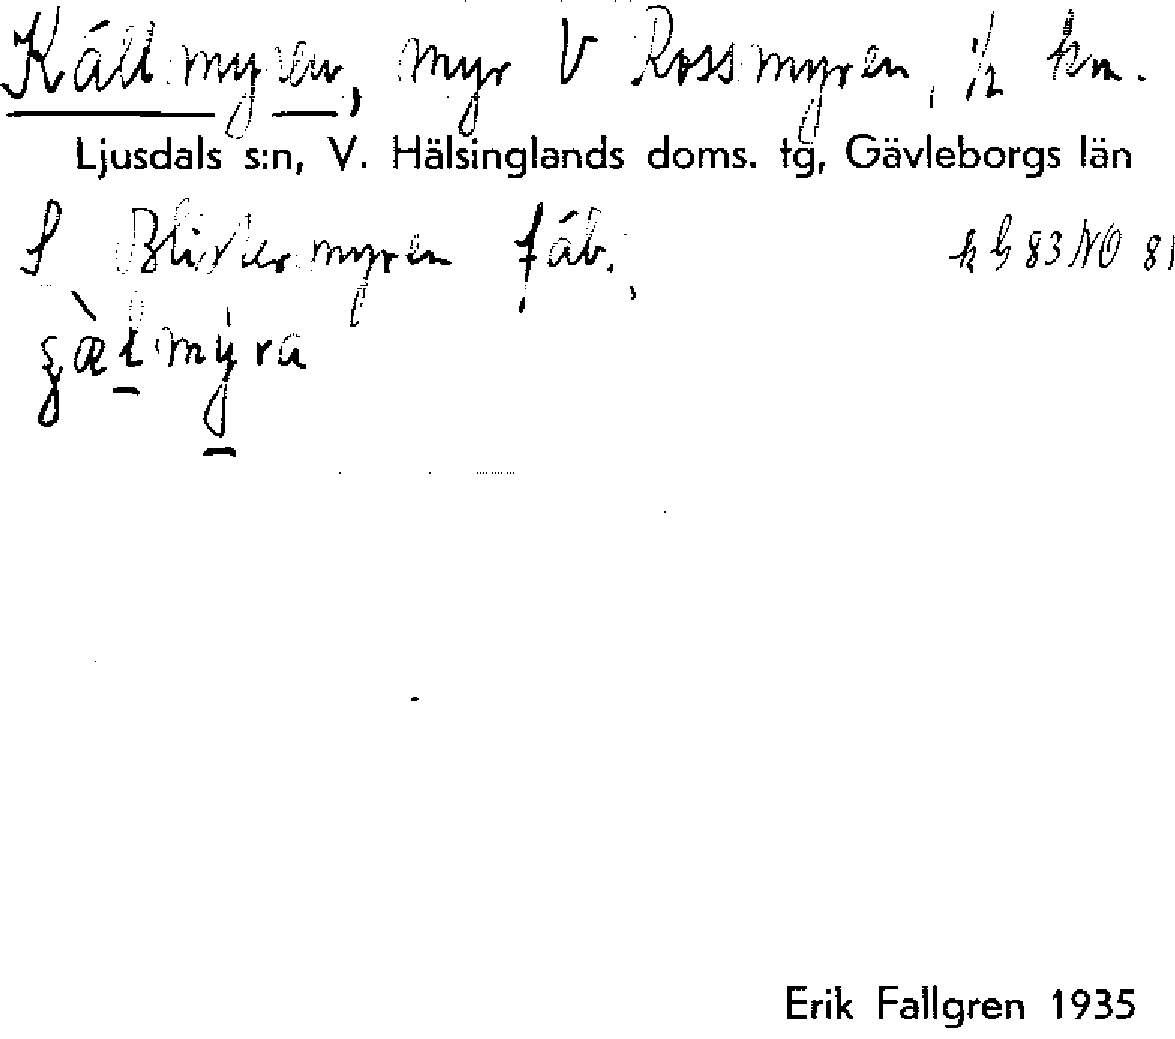 Källmyren, myr V Rossmyren, 1/2 km.
Ljusdals s:n, V. Hälsinglands doms. tg, Gävleborgs län
S Blistermyren fäb. k G 83 NO 81
myra
Erik Fallgren 1935